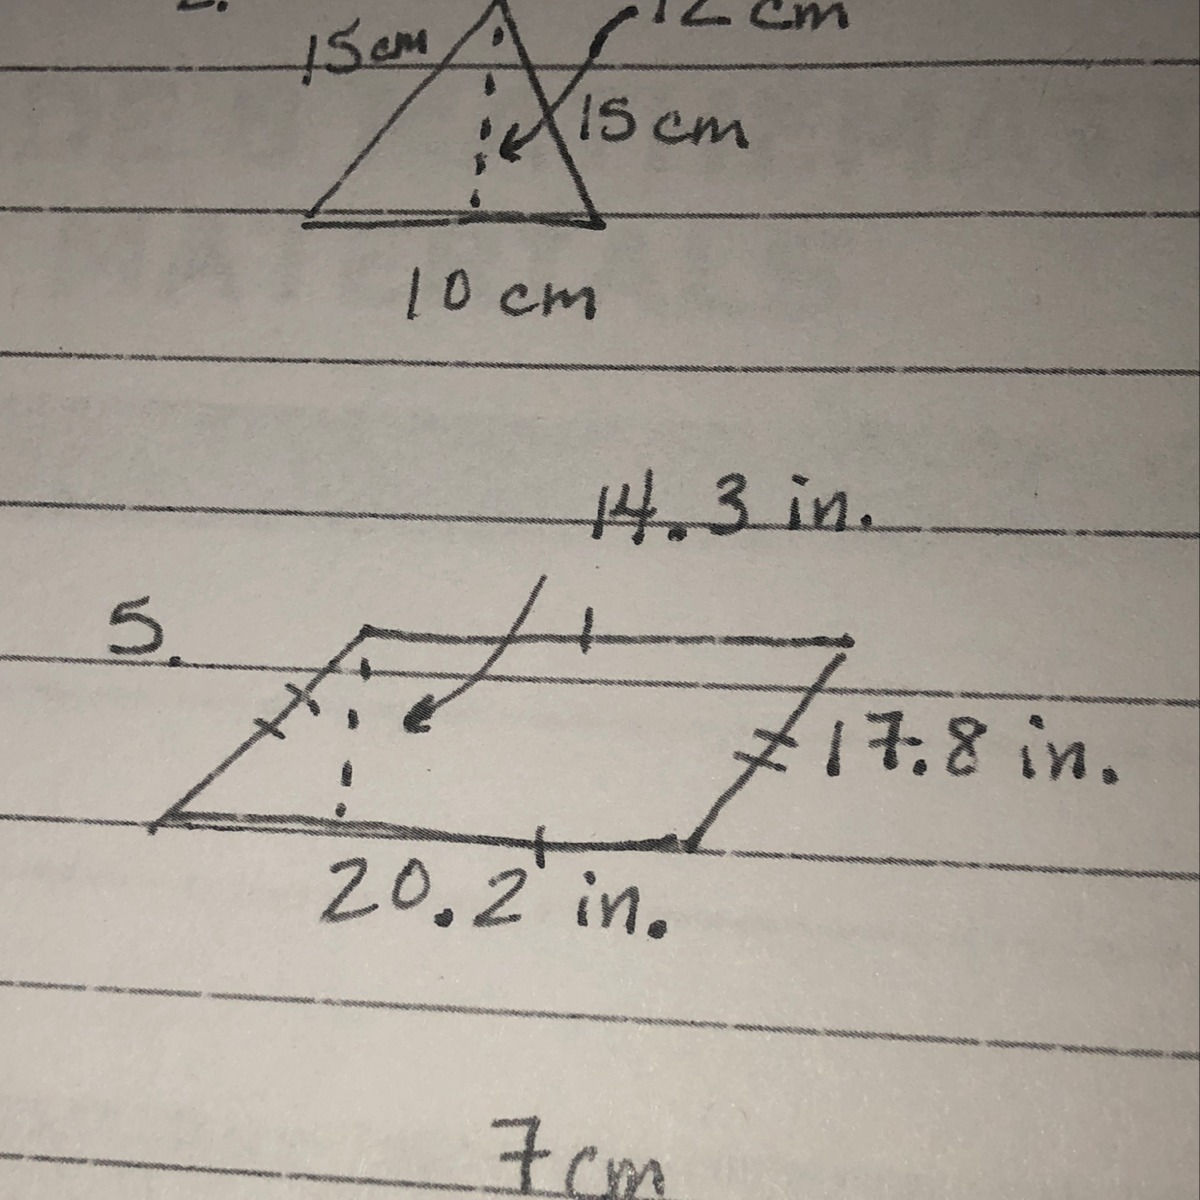 2.
15cm
12 cm
15 cm
10 cm
14.3 in.
5.
17.8 in.
20.2 in.
7cm